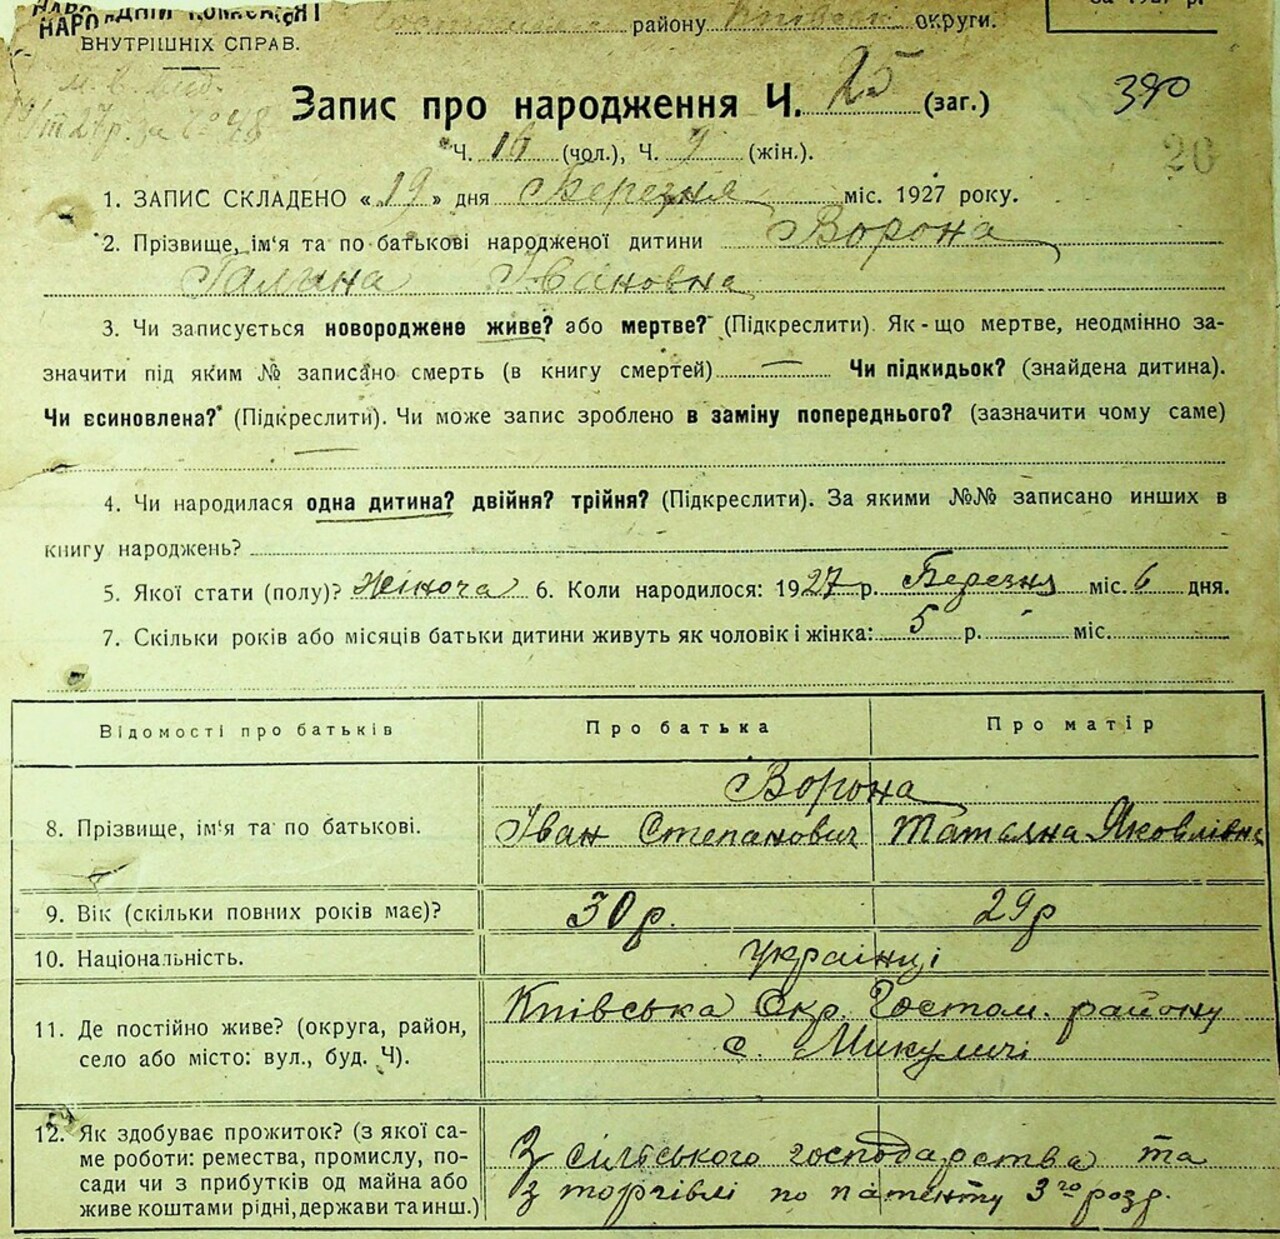 НАРОДНІЙ КОМІСАРІЯТ
ВНУТРІШНІХ СПРАВ.
району округи.
за 1927 р.
Запис про народження Ч. 25 (заг.)
390
Ч. 16 (чол.), Ч. 9 (жін.).
26
1. ЗАПИС СКЛАДЕНО «19» дня Березня міс. 1927 року.
2. Прізвище, ім'я та по батькові народженої дитини Ворона
Галина Івановна
3. Чи записується новороджене живе? або мертве? (Підкреслити). Як-що мертве, неодмінно за-
значити під яким № записано смерть (в книгу смертей) — Чи підкидьок? (знайдена дитина).
Чи всиновлена? (Підкреслити). Чи може запис зроблено в заміну попереднього? (зазначити чому саме)
4. Чи народилася одна дитина? двійня? трійня? (Підкреслити). За якими №№ записано инших в
книгу народжень?
5. Якої стати (полу)? Жіноча 6. Коли народилося: 1927 р. Березня міс. 6 дня.
7. Скільки років або місяців батьки дитини живуть як чоловік і жінка: 5 р. - міс.
Відомості про батьків Про батька Про матір
Ворона
8. Прізвище, ім'я та по батькові. Іван Степанович Татьяна Яковлівна
9. Вік (скільки повних років має)? 30 р. 29 р
10. Національність. українці
11. Де постійно живе? (округа, район,
село або місто: вул., буд. Ч).
Київська Окр. Гостом. району
с. Микуличі
12. Як здобуває прожиток? (з якої са-
ме роботи: ремества, промислу, по-
сади чи з прибутків од майна або
живе коштами рідні, держави та инш.)
З сільського господарства та
з торгівлі по патенту 3го розд.